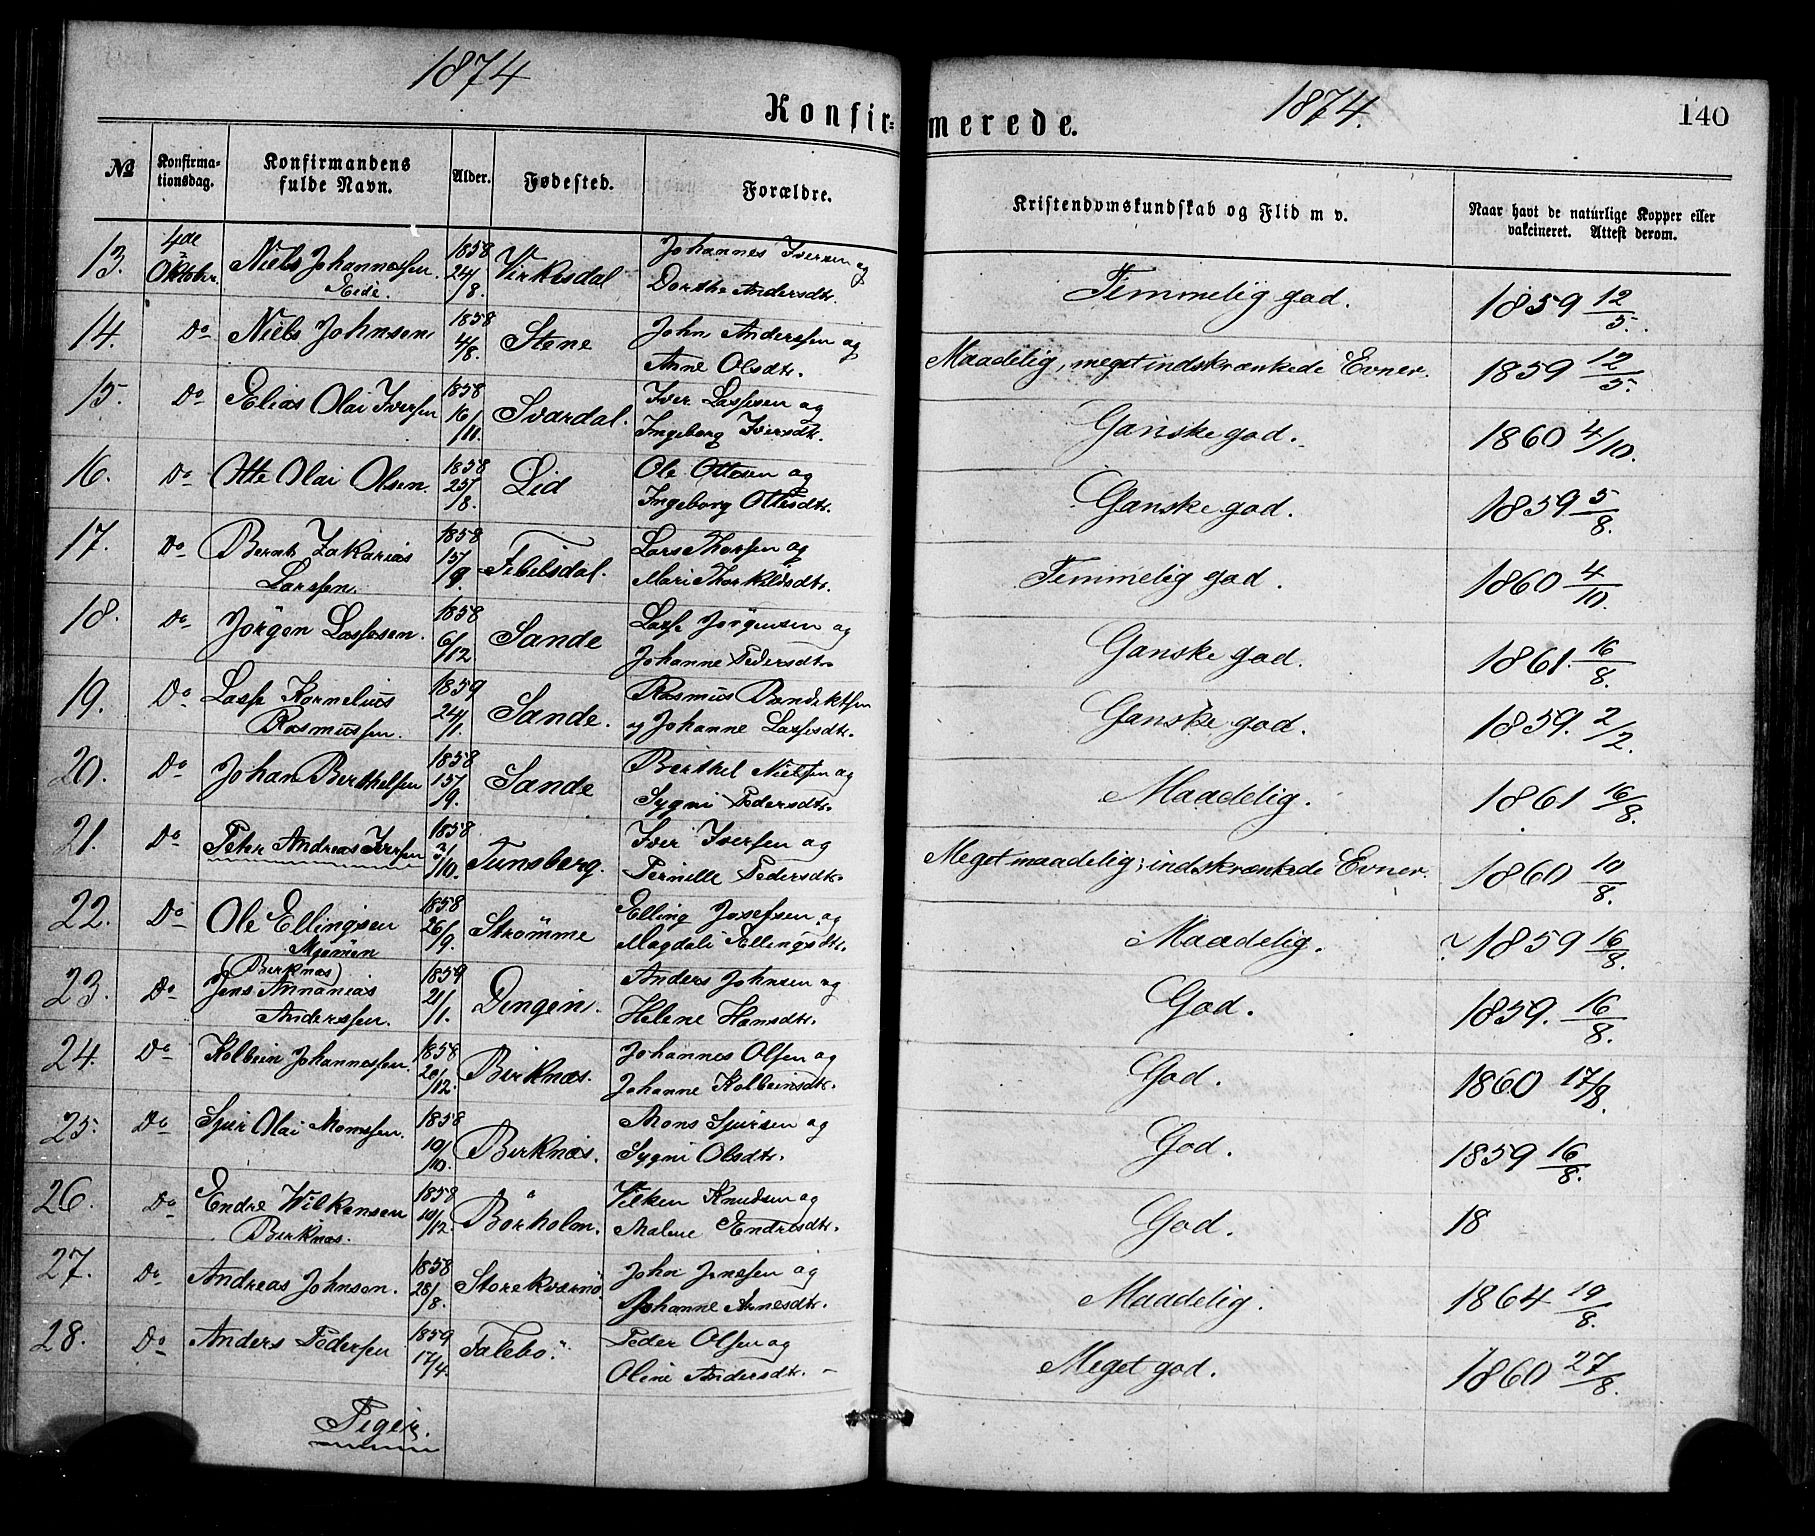 1874
1874.
140
Konfir=
merede.
№
Konfirma-
tionsdag.
Konfirmandens
fulde Navn.
Alder.
Fødested.
Forældre.
Kristendomskundskab og Flid m v.
Naar havt de naturlige Kopper eller
vakcineret. Attest derom.
13. 4de Oktober. Niels Johannessen Eide. 1858 24/8. Virkesdal Johannes Iversen og
Dorthe Andersdtr. Temmelig god. 1859 12/5.
14. Do Niels Johnsen 1858 4/8. Stene John Anderssen og
Anne Olsdtr. Maadelig, meget indskrænkede Evner. 1859 12/5.
15. Do Elias Olai Iversen 1858 16/11. Svardal. Iver Lassesen og
Ingeborg Iversdtr. Ganske god. 1860 4/10.
16. Do Otte Olai Olsen. 1858 25/8. Lid Ole Ottesen og
Ingeborg Ottesdtr. Ganske god. 1859 5/8.
17. Do Bernt Zakarias
Larssen. 1858 15/9. Febilsdal. Lars Thorsen og
Mari Thorkildsdtr. Temmelig god. 1860 4/10.
18. Do Jørgen Lassesen. 1858 6/12 Sande Lasse Jørgensen og
Johanne Pedersdtr. Ganske god. 1861. 16/8.
19. Do Lasse Kornelius
Rasmussen. 1859 24/1. Sande. Rasmus Bendiktsen
og Johanne Lassesdtr. Ganske god. 1859. 2/2.
20. Do Johan Berthelsen 1858 15/9. Sande Berthel Nielsen og
Sygni Pedersdtr. Maadelig. 1861 16/8.
21. Do Peter Andreas Iversen 1858 3/10. Tunsberg. Iver Iversen og
Pernille Pedersdtr. Meget maadelig; indskrænkede Evner. 1860 10/8.
22. Do Ole Ellingsen
Mjømen 1858 26/9. Strømme Elling Josefsen og
Magdali Ellingsdtr. Maadelig. 1859 16/8.
23. Do (Birknæs)
Jens Annanias
Anderssen. 1859 21/1. Dingen. Anders Johnsen og
Helene Hansdtr. God. 1859. 16/8.
24. Do Kolbein Johannessen. 1858 20/12. Birknæs. Johannes Olsen og
Johanne Kolbeinsdtr. God. 1860 17/8.
25. Do Sjur Olai Monssen. 1858 10/10. Birknæs. Mons Sjursen og
Sygni Olsdtr. God. 1859 16/8.
26. Do Endre Wilkensen
Birknæs. 1858 10/12. Børholm. Vilken Knudsen og
Malene Endresdtr. God. 18
27. Do Andreas Johnsen. 1858 28/8. Storekværnø. John Jensen og
Johanne Arnesdtr. Maadelig. 1864 19/8.
28. Do Anders Pedersen 1859 17/4. Falebø. Peder Olsen og
Oline Andersdtr. Meget god. 1860 27/8.
Piger.